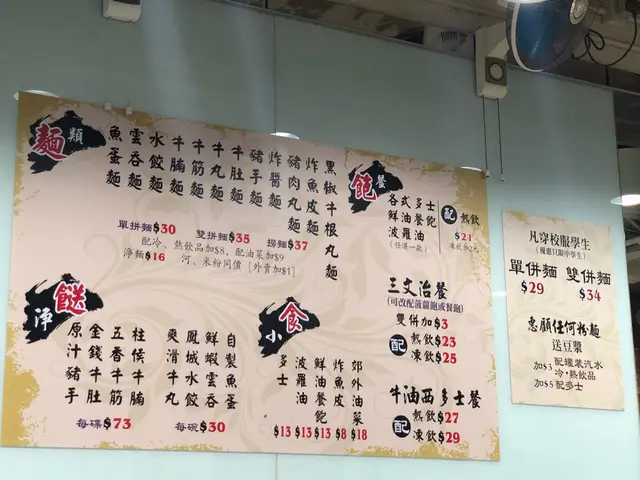 麵類
魚蛋麵
雲吞麵
水餃麵
牛腩麵
牛筋麵
牛丸麵
牛肚麵
豬手麵
炸醬麵
豬肉丸麵
炸魚皮麵
黑椒牛根丸麵
單拼麵$30 雙拼麵$35 撈麵$37
配冷、熱飲品加$8，配油菜加$9
淨麵$16 河、米粉同價 [外賣加$1]
飽餐
各式多士
鮮油餐飽
波蘿油
(任選一款)
配 熱飲
$21
凍飲加2元
三文治餐
(可改配菠蘿飽或餐飽)
雙併加$3
配 熱飲$23
凍飲$25
牛油西多士餐
配 熱飲$27
凍飲$29
淨餸
原汁豬手
金錢牛肚
五香牛筋
柱候牛腩
每碟$73
爽滑牛丸
鳳城水餃
鮮蝦雲吞
自製魚蛋
每碗$30
小食
多士 $13
波蘿油 $13
鮮油餐飽 $13
炸魚皮 $8
郊外油菜 $18
凡穿校服學生
(優惠只限中學生)
單併麵 雙併麵
$29 $34
惠顧任何粉麵
送豆漿
加$3 配罐裝汽水
冷·熱飲品
加$5 配多士